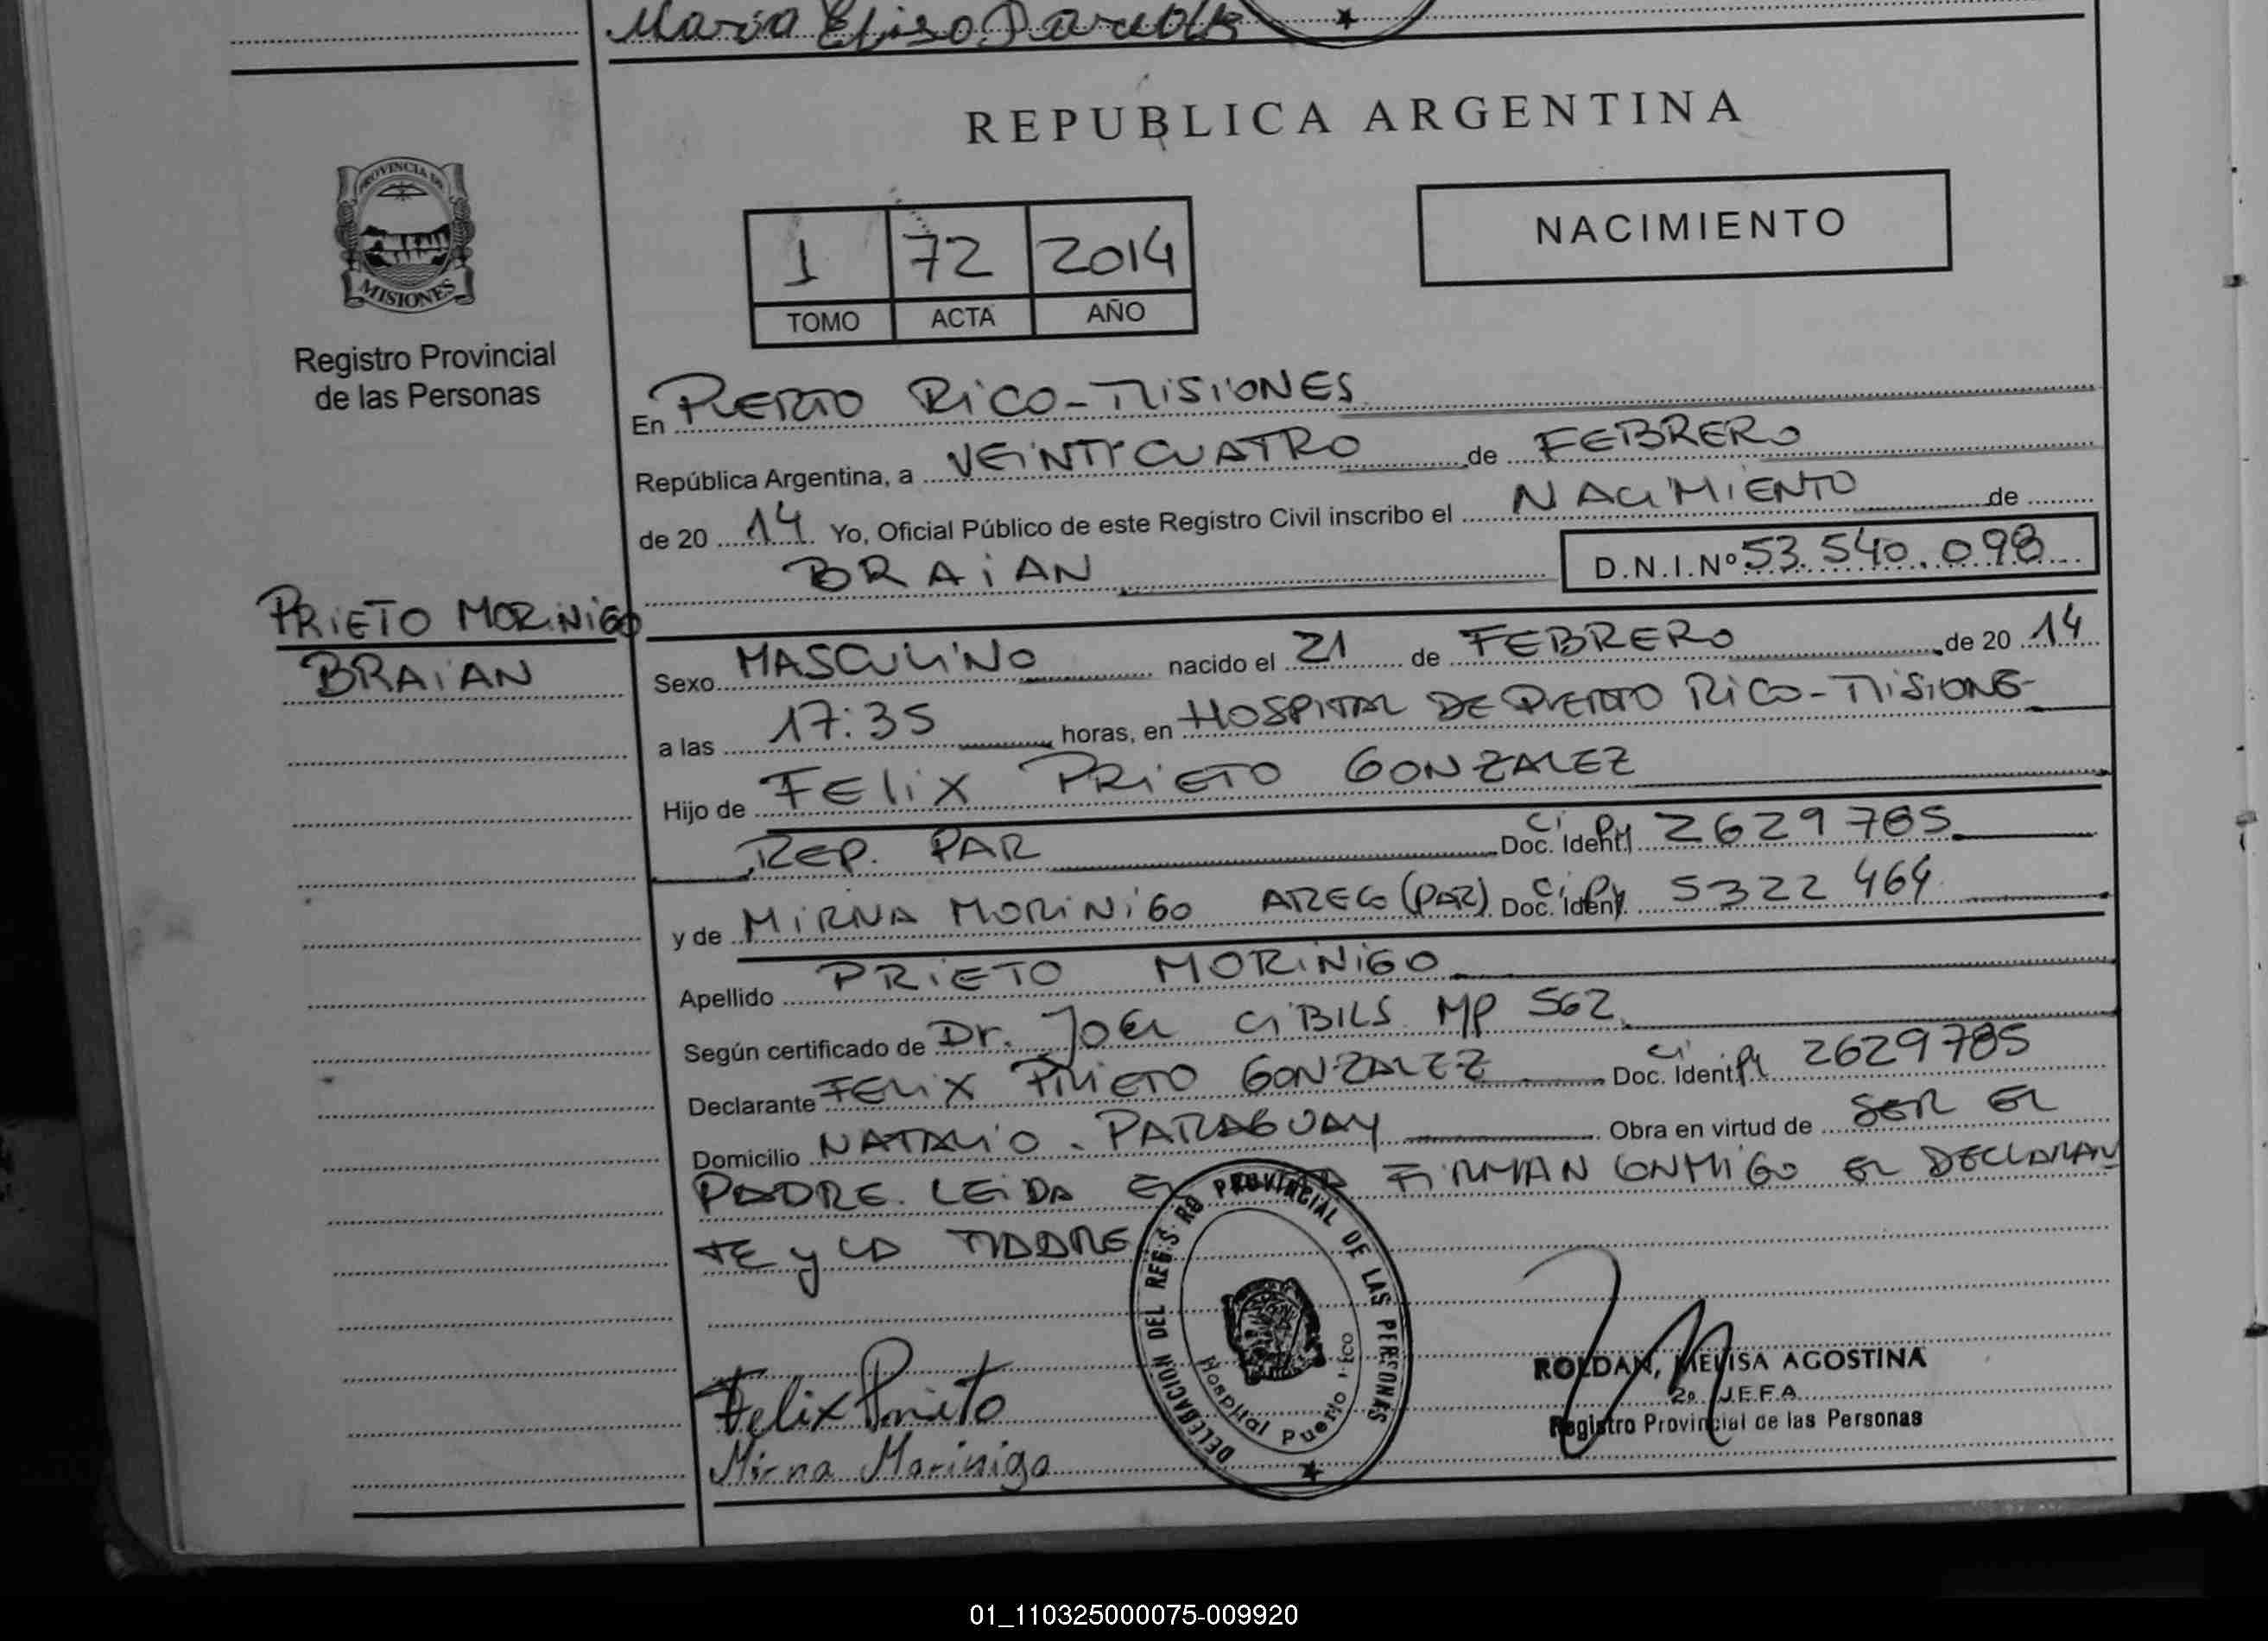 Maria Elisa
REPUBLICA ARGENTINA
PROVINCIA DE
MISIONES
Registro Provincial
de las Personas
1 72 2014
TOMO ACTA AÑO
NACIMIENTO
En PUERTO RICO - MISIONES
República Argentina, a VEINTICUATRO de FEBRERO
de 20 14 Yo, Oficial Público de este Registro Civil inscribo el NACIMIENTO de
BRAIAN D.N.I.Nº 53.540.098
PRIETO MORINIGO
BRAIAN
Sexo MASCULINO nacido el 21 de FEBRERO de 20 14
a las 17:35 horas, en HOSPITAL DE PUERTO RICO - MISIONES
Hijo de FELIX PRIETO GONZALEZ
REP. PAR Doc. Ident. CI Py 2629785
y de MIRNA MORINIGO (PAR) Doc. Ident. CI Py 5322464
Apellido PRIETO MORINIGO
Según certificado de Dr. JOEL CIBILS MP 562
Declarante FELIX PRIETO GONZALEZ Doc. Ident. CI Py 2629785
Domicilio NATALIO - PARAGUAY Obra en virtud de SER EL
PADRE. LEIDA FIRMAN CONMIGO EL DECLARAN
TE y LA MADRE
DELEGACION DEL REGISTRO PROVINCIAL DE LAS PERSONAS
Hospital Puerto Rico
Felix Prieto
Mirna Morinigo
ROLDAN, MELISA AGOSTINA
2a. JEFA
Registro Provincial de las Personas
01_110325000075-009920